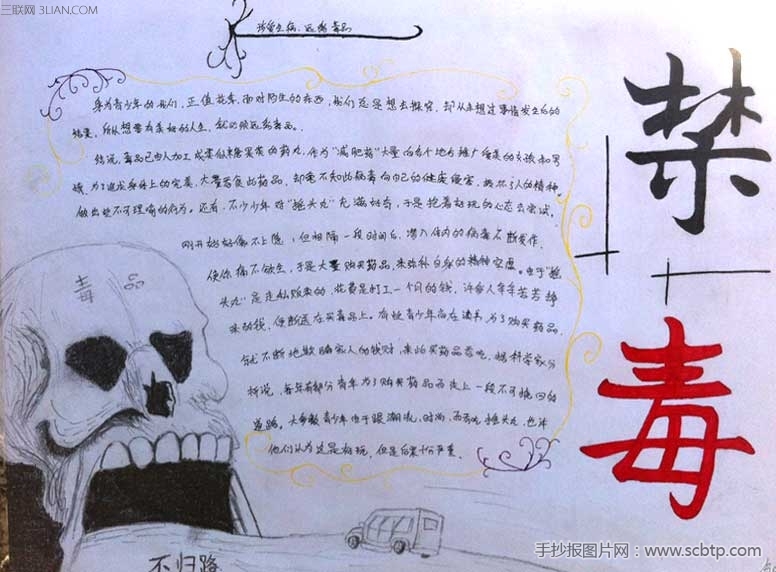 三联网 3LIAN.COM
珍爱生命、远离毒品
禁
毒
身为青少年的我们，正值花季，面对陌生的东西，我们总是想去探究，却从未想过事情发生后的
结果，所以想要有美好的人生，就必须远离毒品。
听说，毒品已由人加工成类似糖果类的药丸，作为“减肥药”大量向各个地方推广爱美的女孩和男
孩，为了追求身体上的完美，大量吞食此药品，却毫不知此病毒向自己的健康侵害，损坏了人的精神，
做出些不可理喻的行为。还有，不少少年对“摇头丸”充满好奇，于是抱着好玩的心态去尝试，
刚开始好像不上瘾，但相隔一段时间后，潜入体内的病毒不断发作，
使你痛不欲生，于是大量购买药品，来弥补自身的精神空虚。由于“摇
头丸”是走私贩来的，花费是打工一个月的钱，许多人辛辛苦苦挣
来的钱，便断送在买毒品上。有些青少年尚在读书，为了购买药品，
就不断地欺骗家人的钱财，来购买药品吞吃，据科学家分
析说，每年有部分青年为了购买药品而走上一段不可挽回的
道路。大多数青少年由于跟潮流，时尚，而吞吃摇头丸，也许
他们认为这是好玩，但是后果十分严重。
毒 品
不归路
手抄报图片网：www.scbtp.com